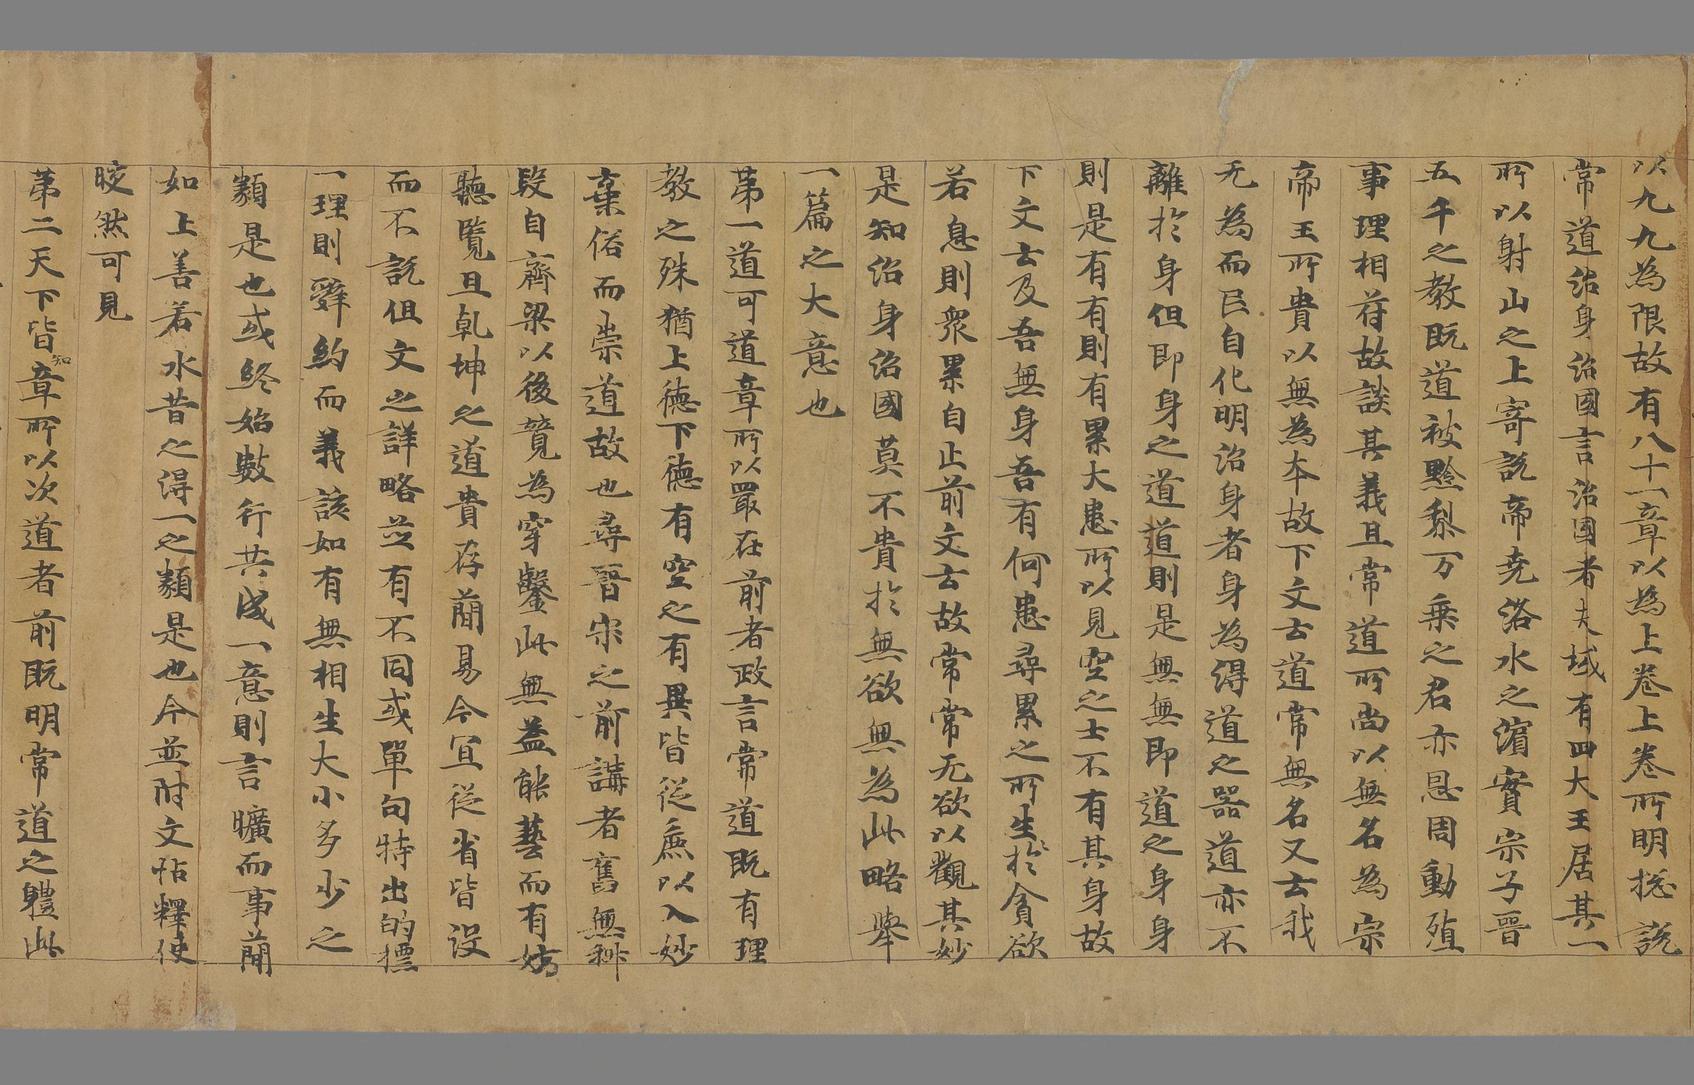 以九九為限故有八十一章以為上卷上卷所明揔說
常道治身治國言治國者夫域有四大王居其一
所以射山之上寄說帝尭洛水之濵實宗子晉
五千之教既道被黔黎万乗之君亦恩周動殖
事理相符故談其義且常道所尚以無名為宗
帝王所貴以無為為本故下文云道常無名又云我
无為而民自化明治身者身為得道之器道亦不
離於身但即身之道道則是無無即道之身身
則是有有則有累大患所以見空之士不有其身故
下文云及吾無身吾有何患尋累之所生於貪欲
若息則衆累自止前文云故常常无欲以觀其妙
是知治身治國莫不貴於無欲無為此略舉
一篇之大意也
第一道可道章所以冣在前者政言常道既有理
教之殊猶上徳下徳有空之有異皆從麁以入妙
棄俗而崇道故也尋晉宋之前講者舊無科
段自齊梁以後竸為穿鑿此無益能藝而有妨
聽覧且乹坤之道貴存蕳易今冝從省皆没
而不說但文之詳略並有不同或單句特出的摽
一理則辝約而義該如有無相生大小多少之
類是也或終始數行共成一意則言曠而事蕳
如上善若水昔之得一之類是也今並附文帖釋使
晈然可見
第二天下皆知章所以次道者前既明常道之軆此